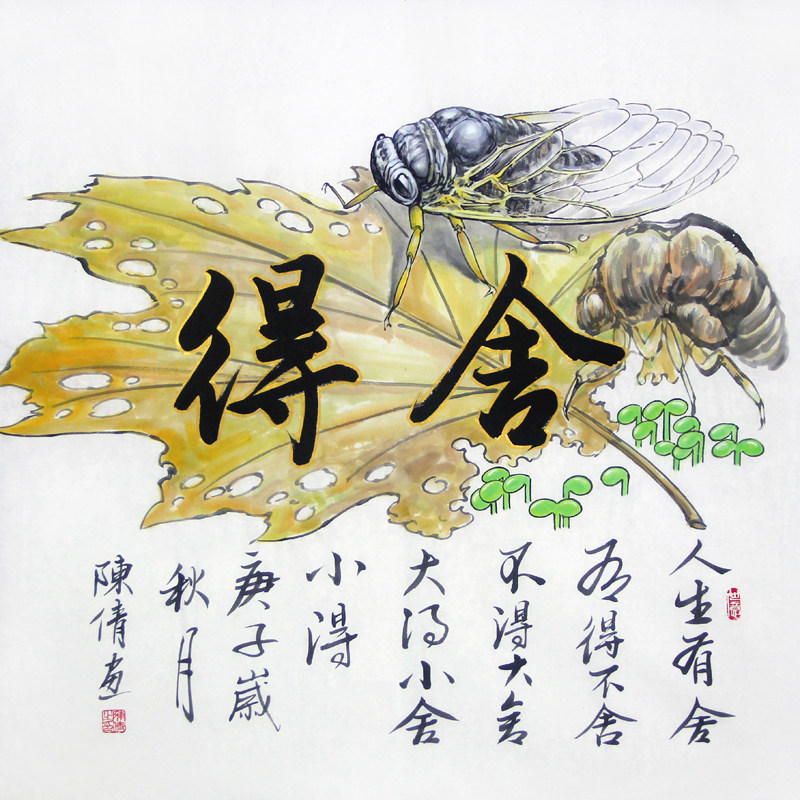 舍得
人生有舍
有得不舍
不得大舍
大得小舍
小得
庚子歲
秋月
陳倩畫